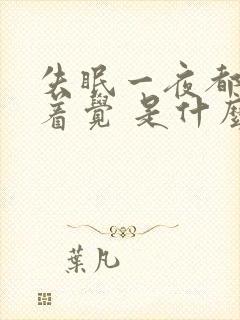 失眠一夜都
着覺 是什麼
葉凡